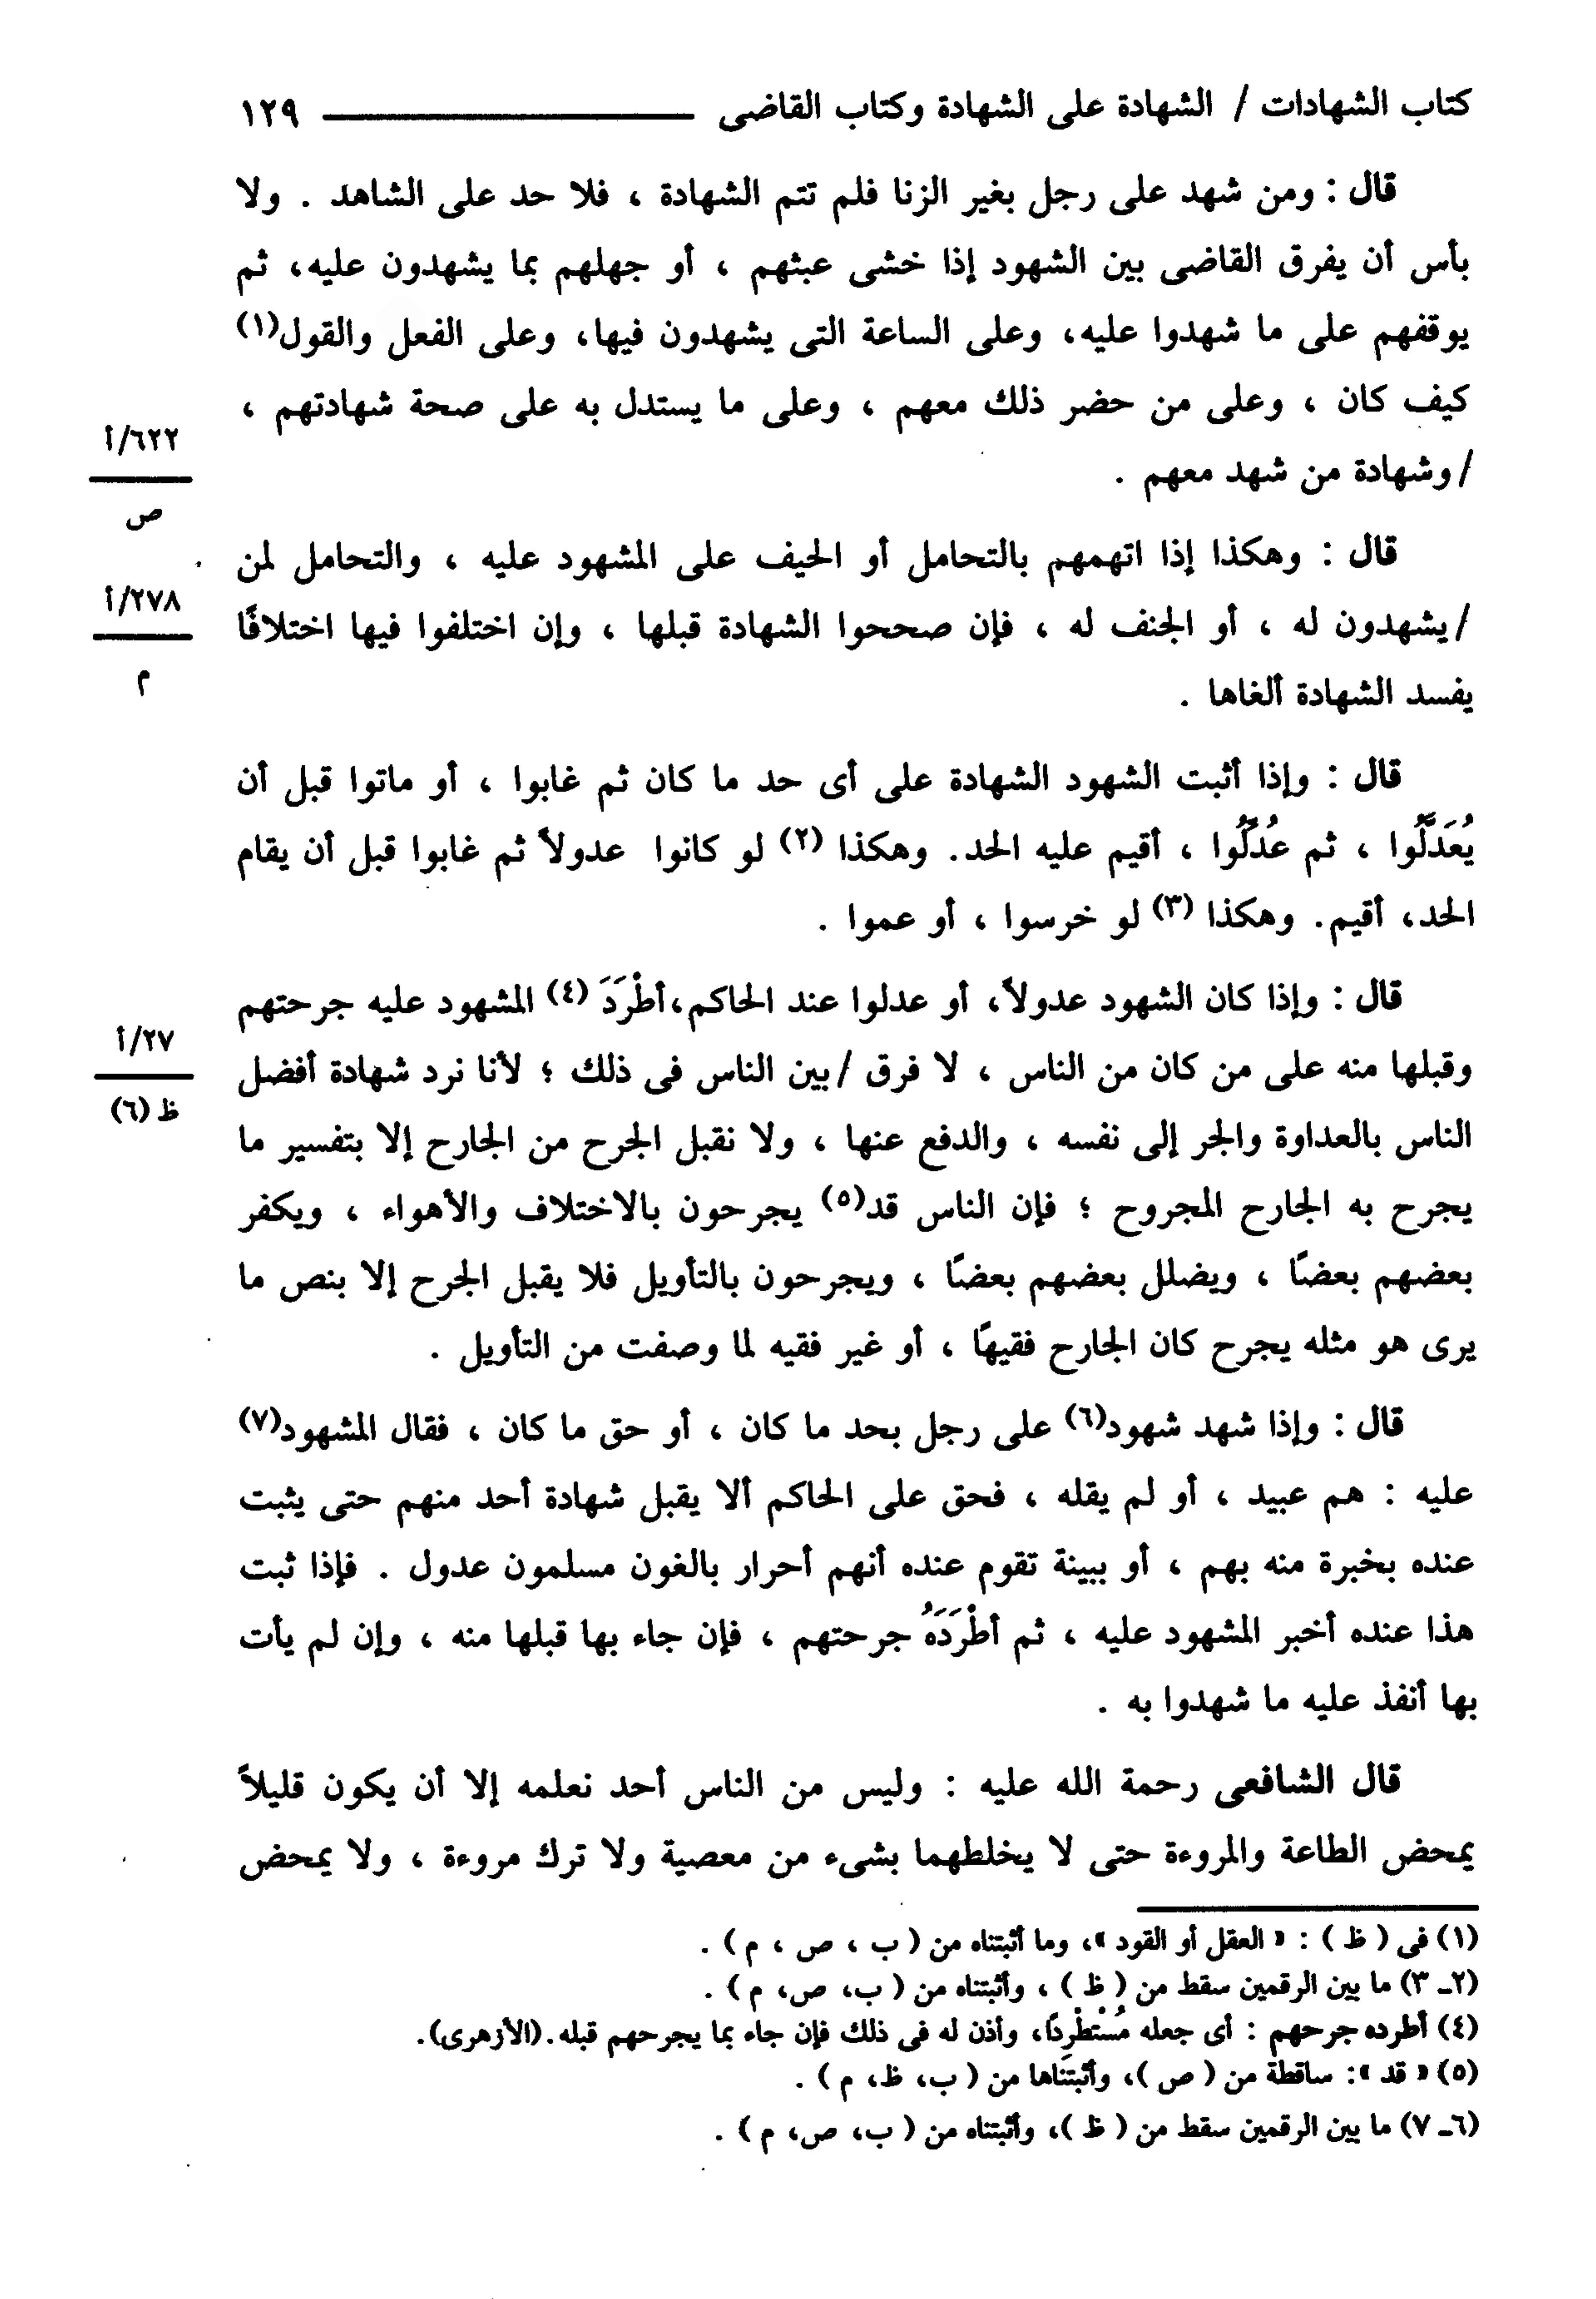 كتاب الشهادات / الشهادة على الشهادة وكتاب القاضى ــــــــ ١٢٩
قال : ومن شهد على رجل بغير الزنا فلم تتم الشهادة ، فلا حد على الشاهد . ولا
بأس أن يفرق القاضى بين الشهود إذا خشى عبثهم ، أو جهلهم بما يشهدون عليه، ثم
يوقفهم على ما شهدوا عليه، وعلى الساعة التى يشهدون فيها، وعلى الفعل والقول(١)
كيف كان ، وعلى من حضر ذلك معهم ، وعلى ما يستدل به على صحة شهادتهم ،
٦٢٢/أ
ص
/وشهادة من شهد معهم .
قال : وهكذا إذا اتهمهم بالتحامل أو الحيف على المشهود عليه ، والتحامل لمن
٢٧٨/أ
م
/يشهدون له ، أو الجنف له ، فإن صححوا الشهادة قبلها ، وإن اختلفوا فيها اختلافًا
يفسد الشهادة ألغاها .
قال : وإذا أثبت الشهود الشهادة على أى حد ما كان ثم غابوا ، أو ماتوا قبل أن
يُعَدَّلُوا ، ثم عُدِّلُوا ، أقيم عليه الحد. وهكذا (٢) لو كانوا عدولاً ثم غابوا قبل أن يقام
الحد، أقيم. وهكذا (٣) لو خرسوا ، أو عموا .
قال : وإذا كان الشهود عدولاً، أو عدلوا عند الحاكم،أطْرَدَ (٤) المشهود عليه جرحتهم
٢٧/أ
ظ (٦)
وقبلها منه على من كان من الناس ، لا فرق /بين الناس فى ذلك ؛ لأنا نرد شهادة أفضل
الناس بالعداوة والجر إلى نفسه ، والدفع عنها ، ولا نقبل الجرح من الجارح إلا بتفسير ما
يجرح به الجارح المجروح ؛ فإن الناس قد(٥) يجرحون بالاختلاف والأهواء ، ويكفر
بعضهم بعضًا ، ويضلل بعضهم بعضًا ، ويجرحون بالتأويل فلا يقبل الجرح إلا بنص ما
يرى هو مثله يجرح كان الجارح فقيهًا ، أو غير فقيه لما وصفت من التأويل .
قال : وإذا شهد شهود(٦) على رجل بحد ما كان ، أو حق ما كان ، فقال المشهود(٧)
عليه : هم عبيد ، أو لم يقله ، فحق على الحاكم ألا يقبل شهادة أحد منهم حتى يثبت
عنده بخبرة منه بهم ، أو ببينة تقوم عنده أنهم أحرار بالغون مسلمون عدول . فإذا ثبت
هذا عنده أخبر المشهود عليه ، ثم أطْرَدَهُ جرحتهم ، فإن جاء بها قبلها منه ، وإن لم يأت
بها أنفذ عليه ما شهدوا به .
قال الشافعى رحمة الله عليه : وليس من الناس أحد نعلمه إلا أن يكون قليلاً
يمحض الطاعة والمروءة حتى لا يخلطهما بشىء من معصية ولا ترك مروءة ، ولا يمحض
(١) فى ( ظ ) : « العقل أو القود »، وما أثبتناه من ( ب ، ص ، م ) .
(٢ـ ٣) ما بين الرقمين سقط من ( ظ ) ، وأثبتناه من ( ب، ص، م ) .
(٤) أطرده جرحهم : أى جعله مُسْتَطْرِدًا، وأذن له فى ذلك فإن جاء بما يجرحهم قبله.(الأزهرى).
(٥) « قد »: ساقطة من ( ص )، وأثبتناها من ( ب، ظ، م ) .
(٦ـ ٧) ما بين الرقمين سقط من ( ظ )، وأثبتناه من ( ب، ص، م ) .